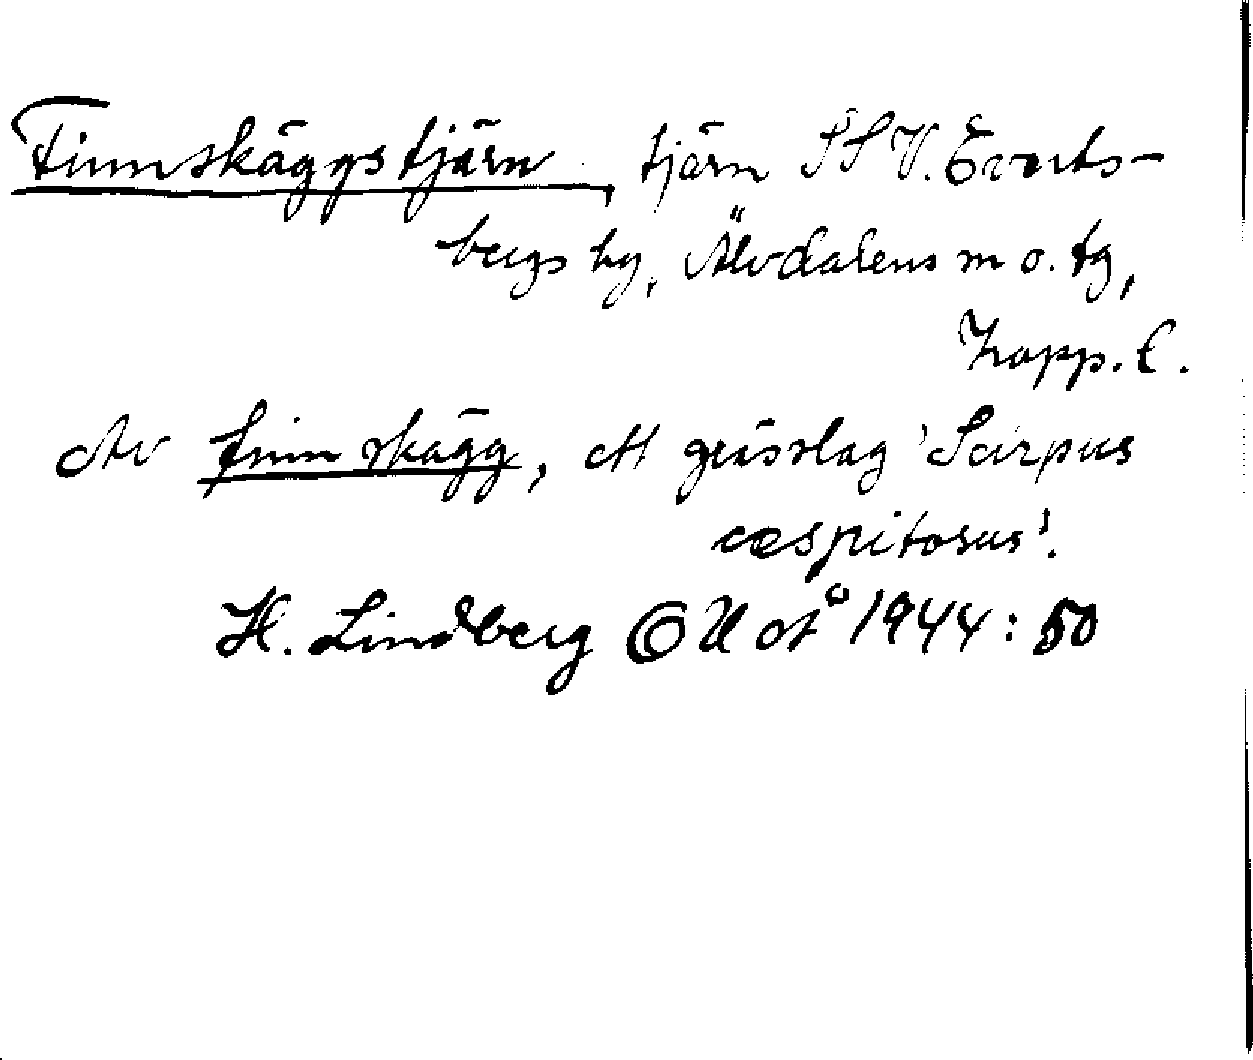 Finnskäggstjärn, tjärn SSV. Everts-
bergs by, Älvdalens sn o. tg,
Kopp. l.
Av finnskägg, ett grässlag 'Scirpus
cæspitosus'.
H. Lindberg 1944: 50